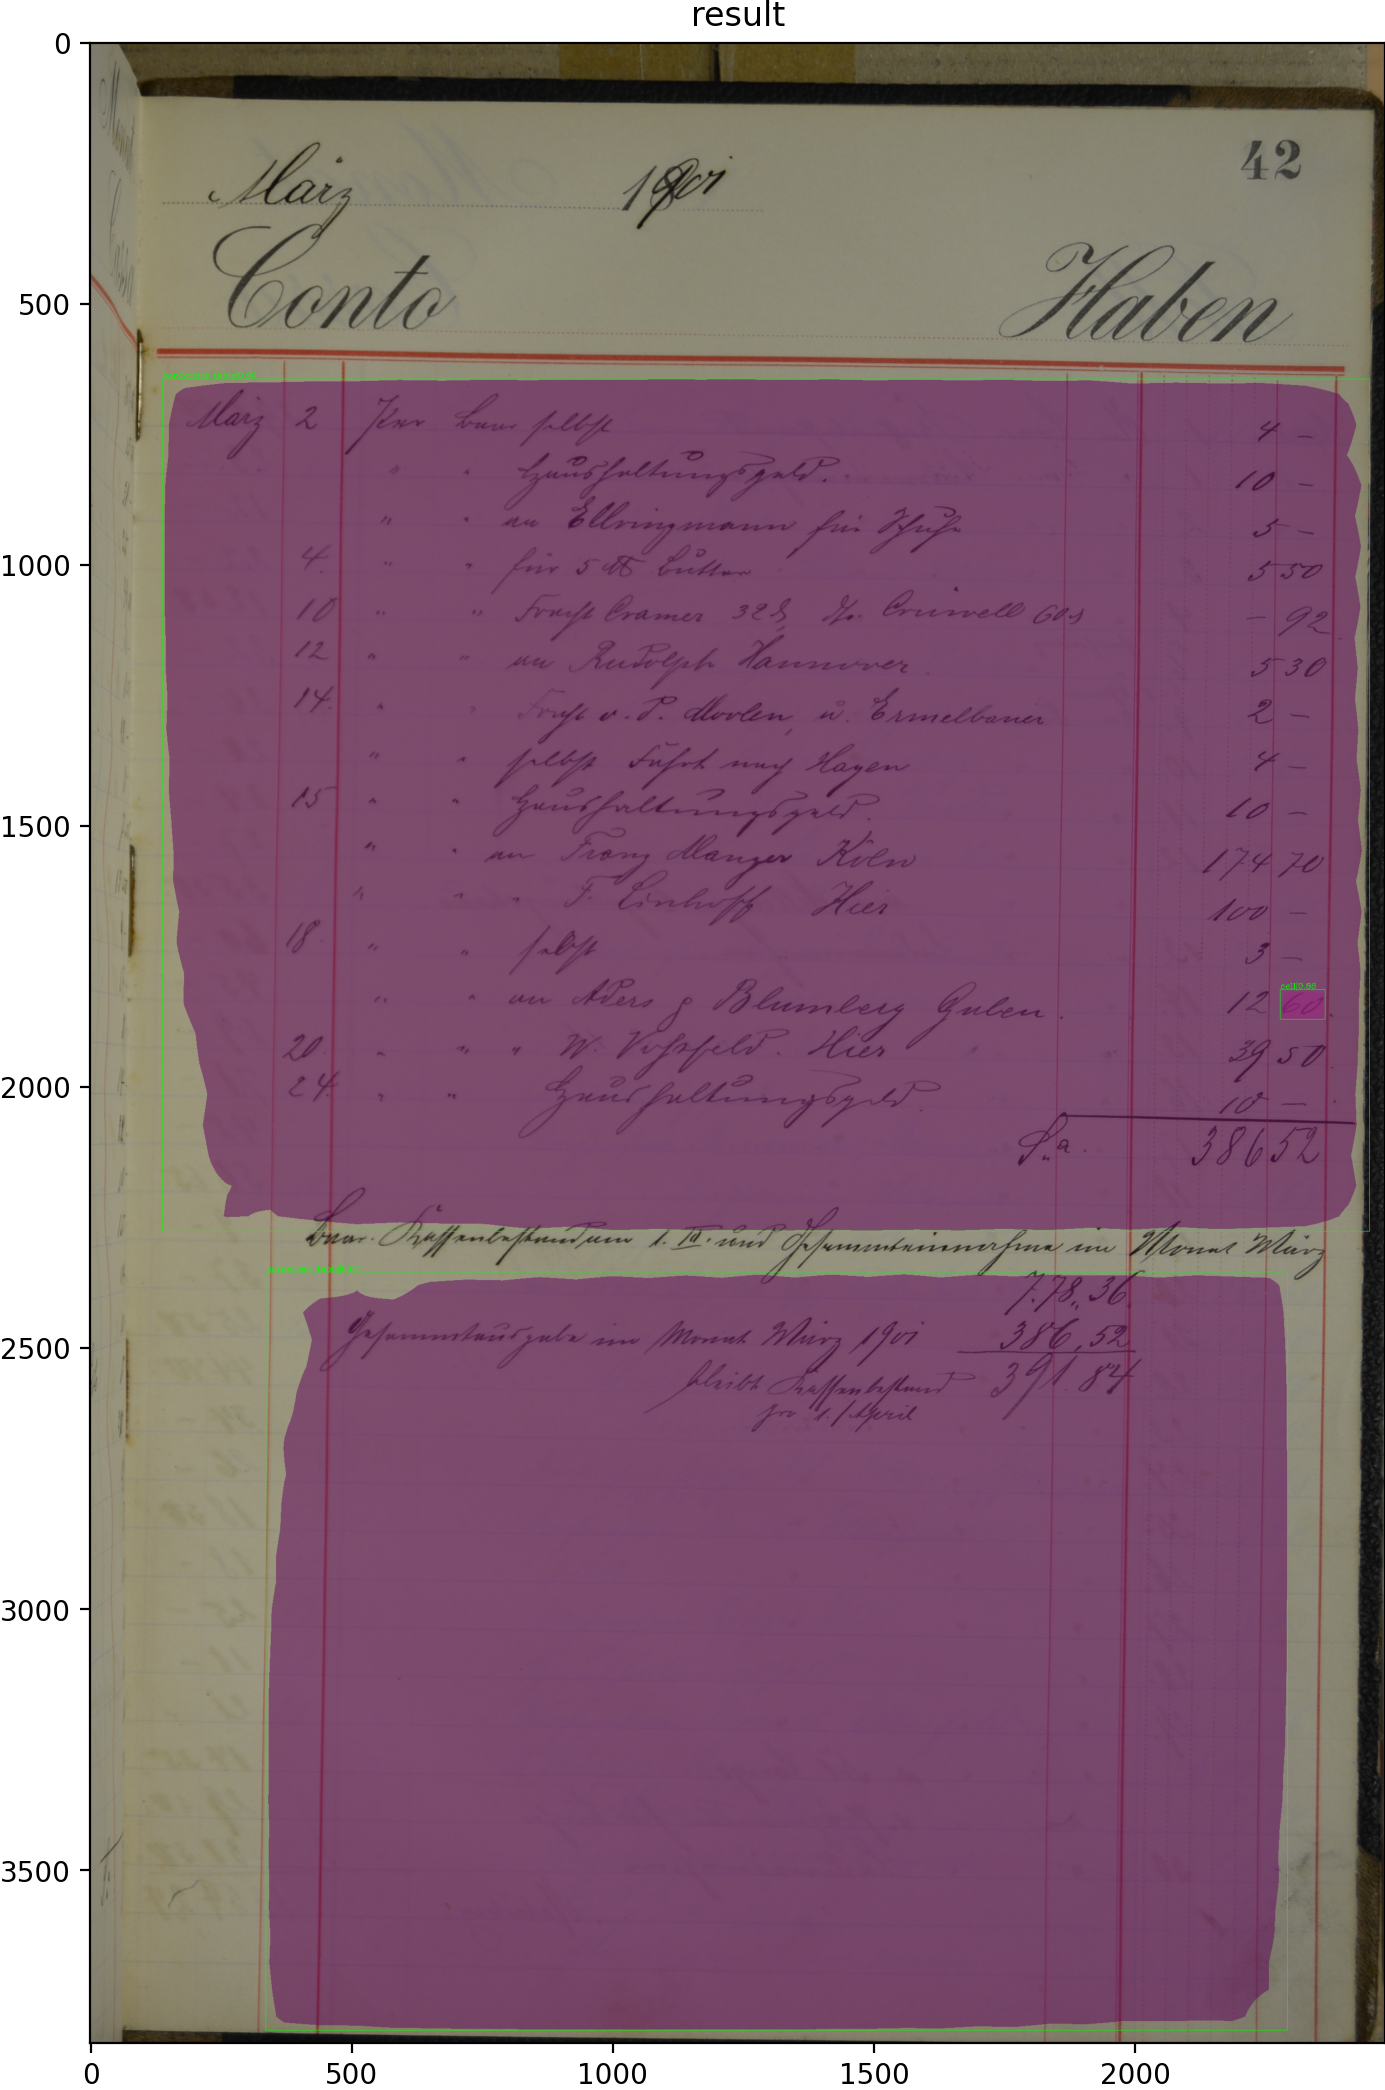 result
42
März 1901
Conto Haben
März 2 Per Baar selbst 4 —
" " Haushaltungsgeld. 10 —
" " an Ellringmann für Schuhe 5 —
4. " " für 5 ℔ Butter 5 50
10 " " Fracht Cramer 32 & Crüwell 60 — 92
12 " " an Rudolph Hannover. 5 30
14. " " Fracht v. P. u. Ermelbauer 2 —
" " selbst Fahrt nach Hagen 4 —
15 " " Haushaltungsgeld. 10 —
" " an Franz Manger Köln 174 70
" " " F. Linhoff Hier 100 —
18. " " selbst 3 —
" " an Aders & Blumberg Guben. 12 60
20. " " " W. Voßfeld. Hier 39 50
24. " " Haushaltungsgeld. 10 —
Sa. 386 52
Baar. Kassenbestand am 1. III. und Gesammteinnahme im Monat März
778,,36
Gesammtausgabe im Monat März 1901 386,52
bleibt Kassenbestand 391.84
per 1./April
0
500
1000
1500
2000
2500
3000
3500
0 500 1000 1500 2000